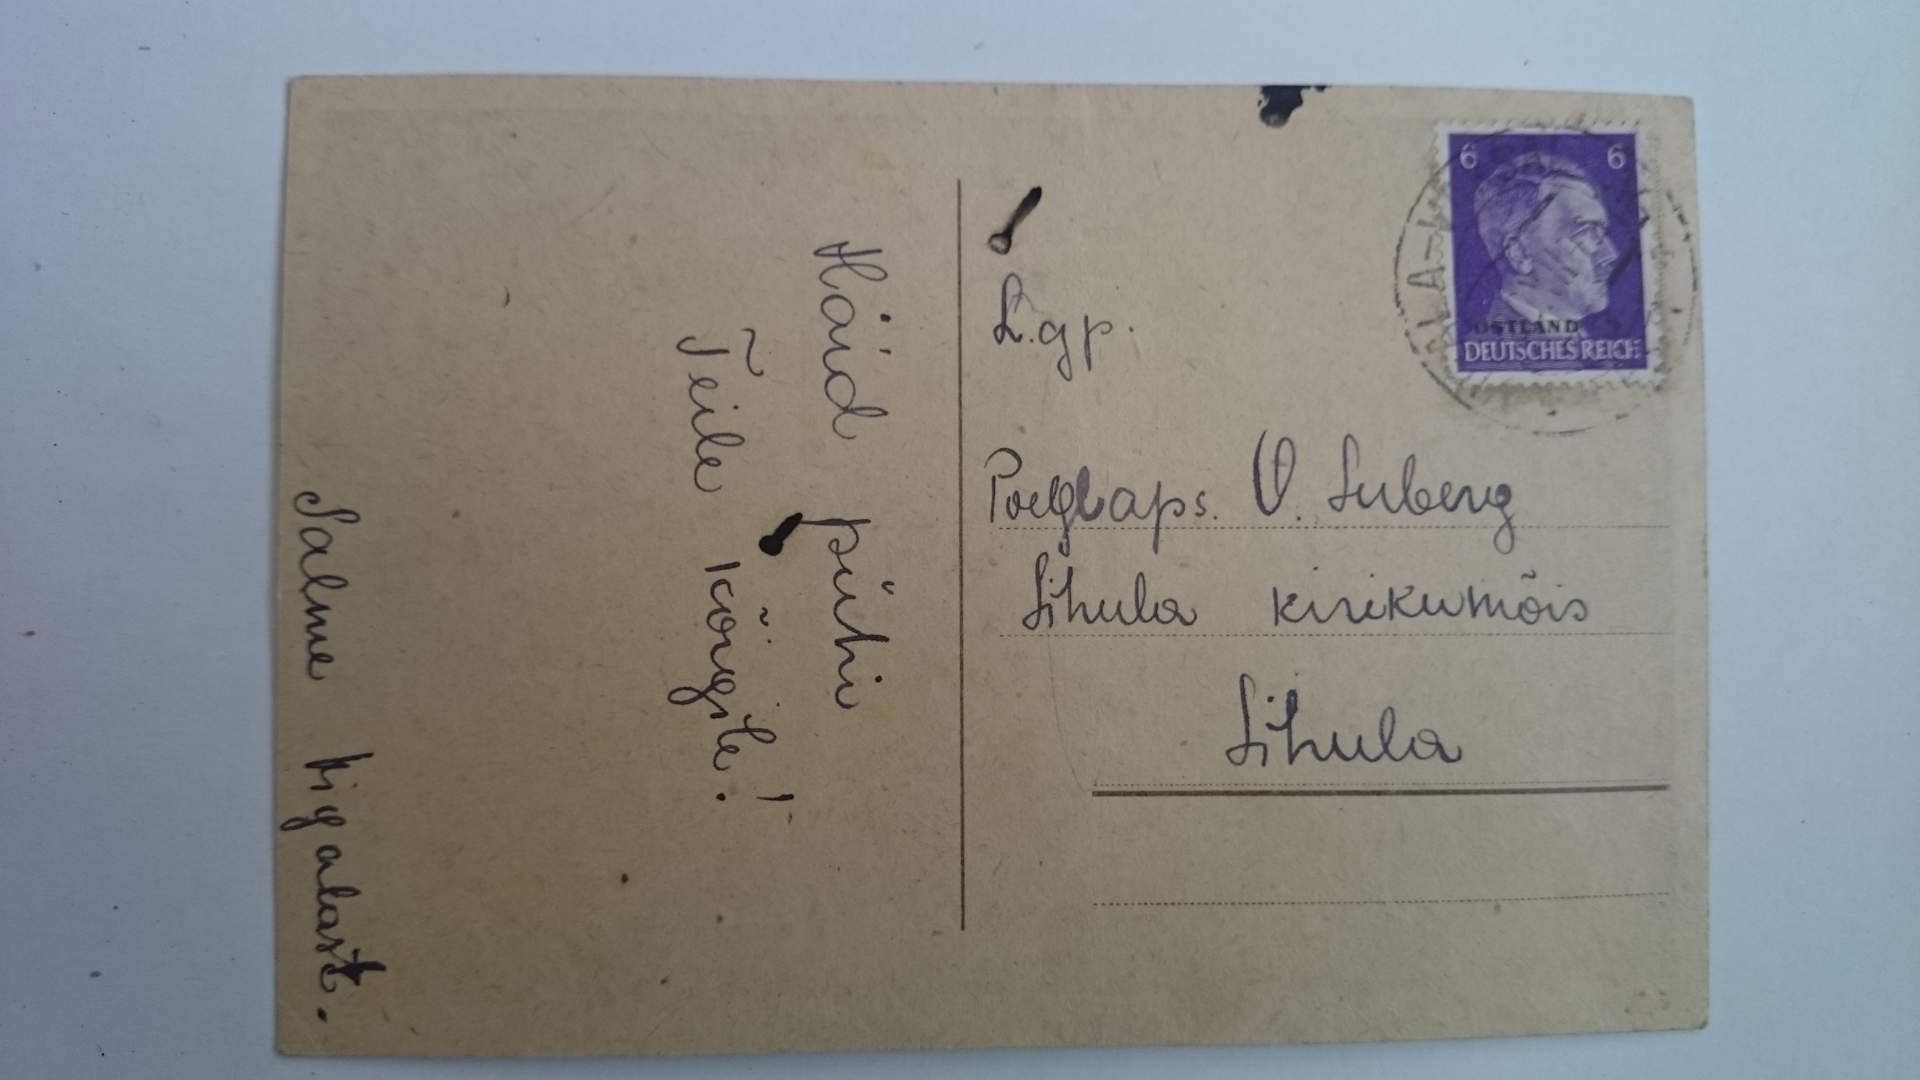 Häid pühi
Teile kõigile!
Salme Tigalast.
L.gp.
Preglaps. V. Luberg
Lihula kirikumõis
Lihula
6 6
OSTLAND
DEUTSCHES REICH